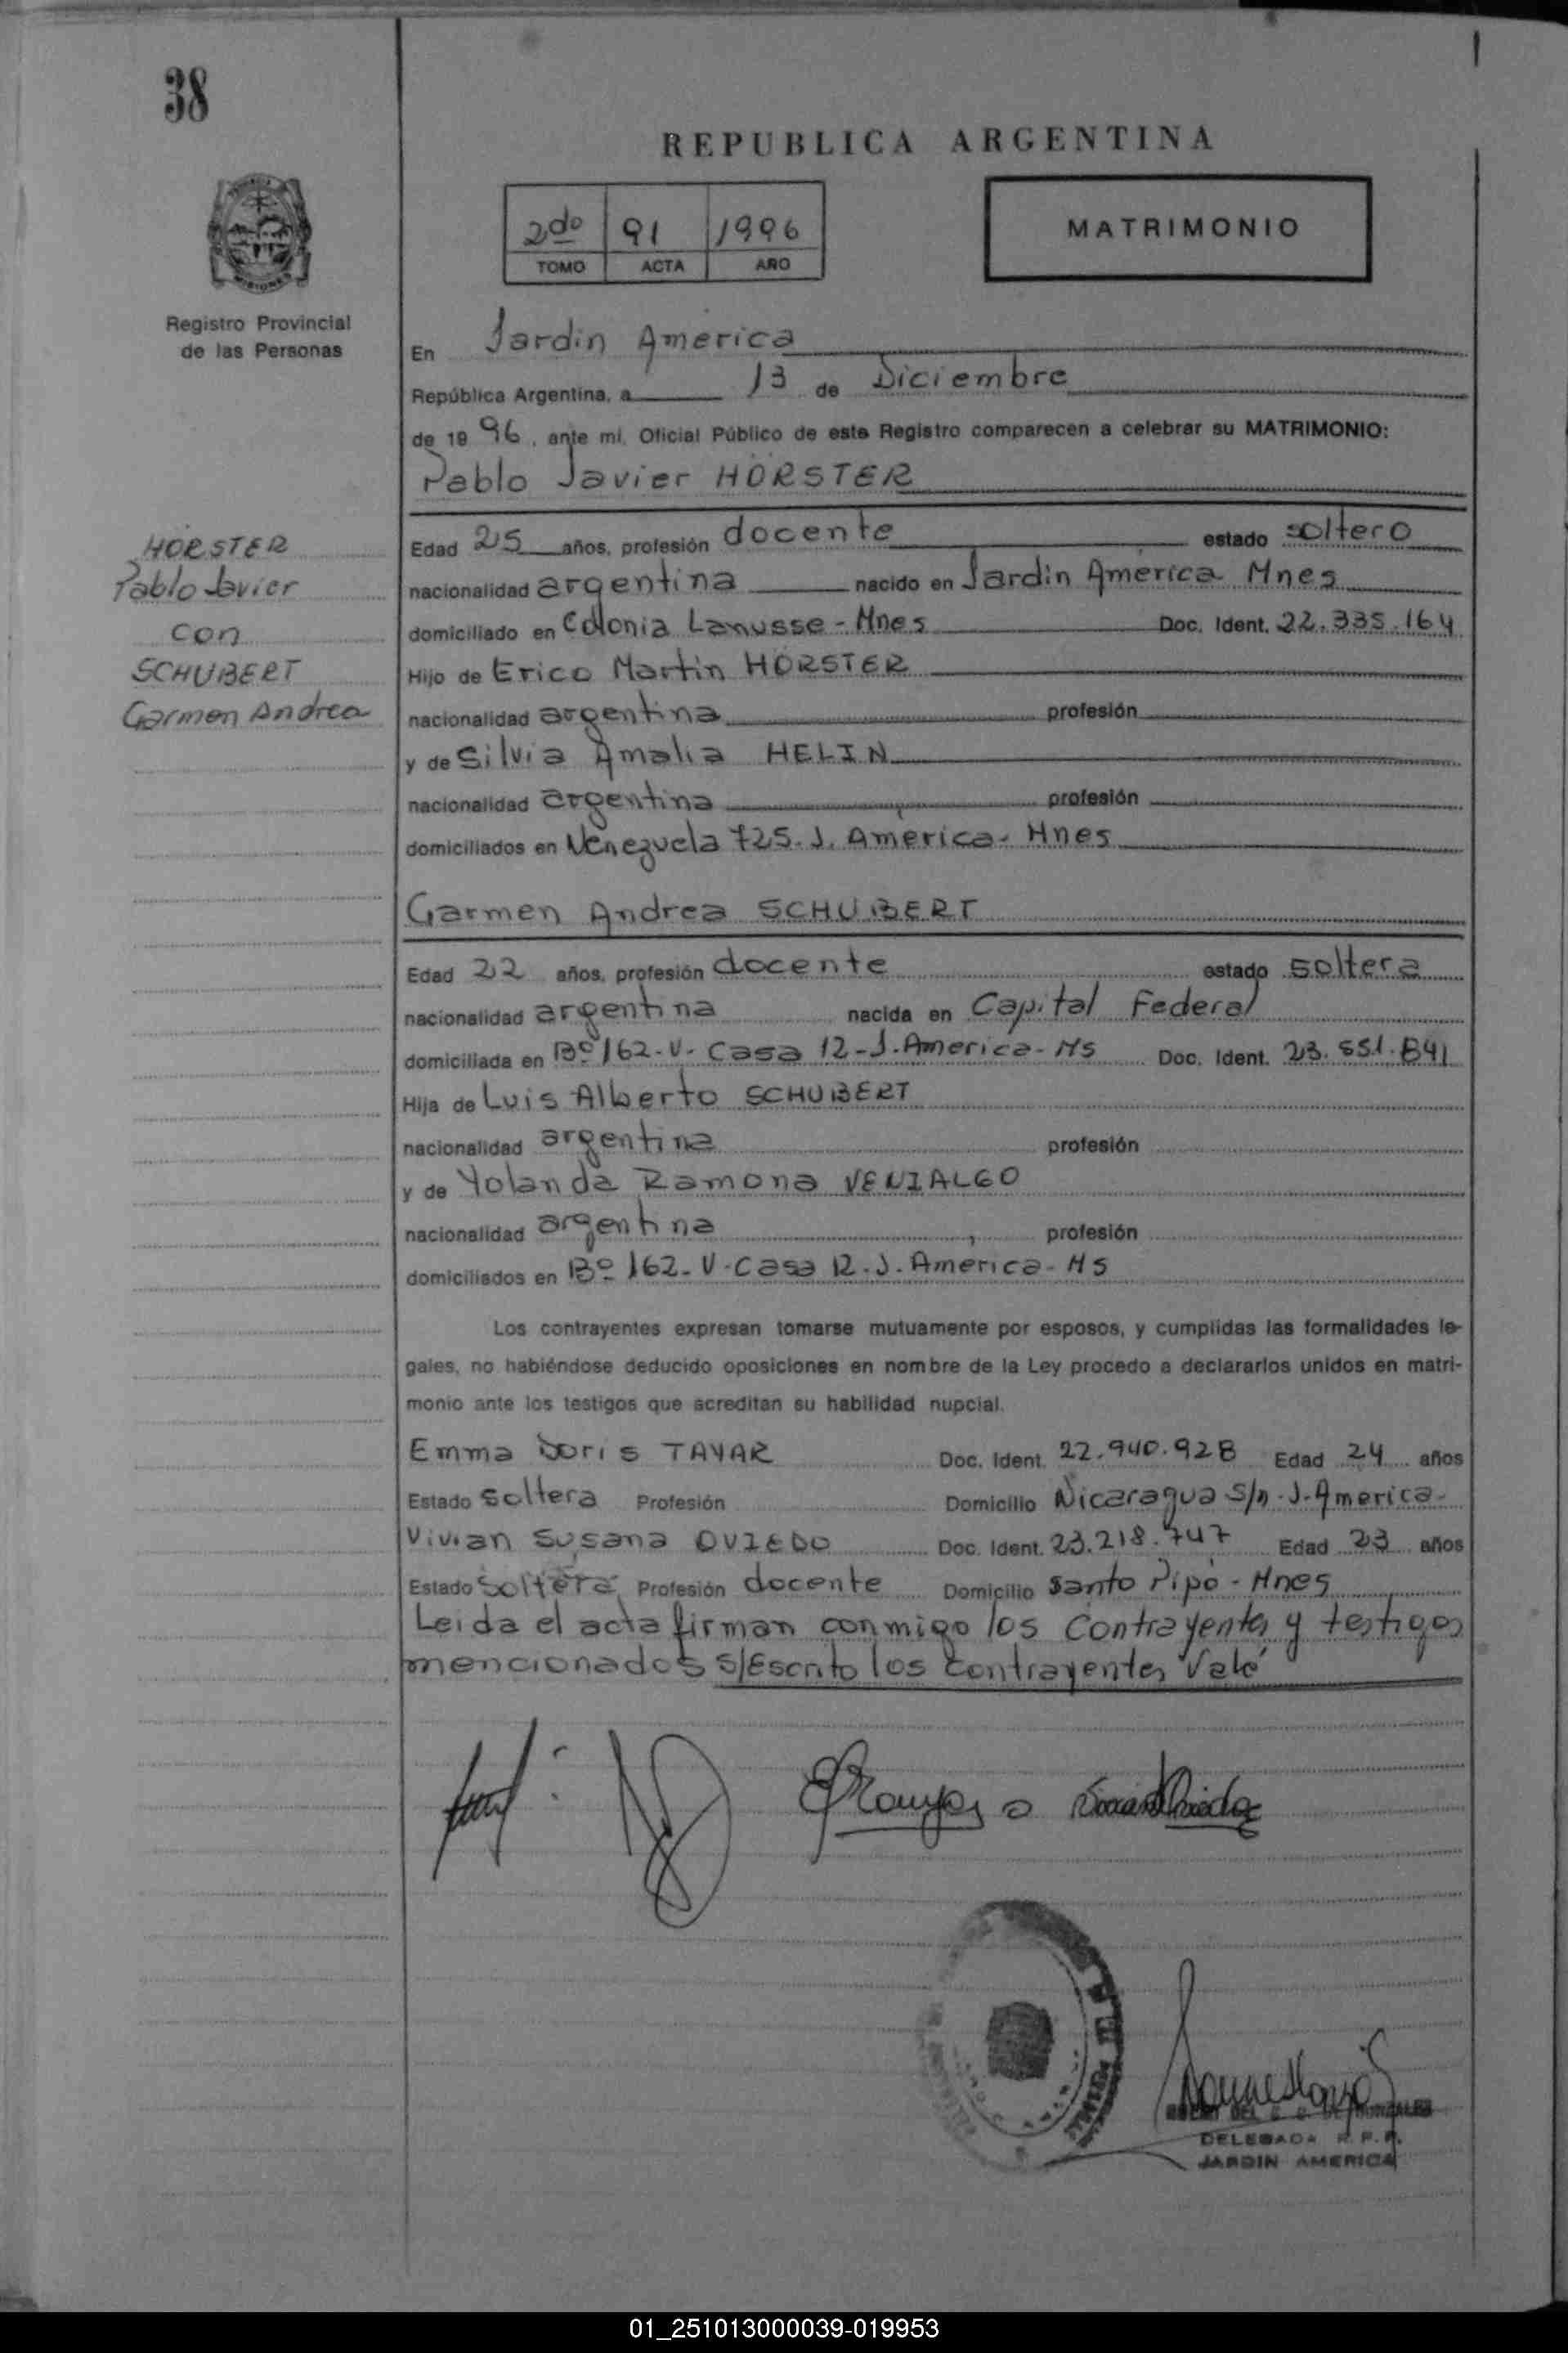 38
REPUBLICA ARGENTINA
2do 91 1996
TOMO ACTA AÑO
MATRIMONIO
MISIONES
Registro Provincial
de las Personas
En Jardin America
República Argentina, a 13 de Diciembre
de 19 96, ante mi, Oficial Público de este Registro comparecen a celebrar su MATRIMONIO:
Pablo Javier HÖRSTER
HÖRSTER
Pablo Javier
con
SCHUBERT
Carmen Andrea
Edad 25 años, profesión docente estado soltero
nacionalidad argentina nacido en Jardin América Mnes
domiciliado en Colonia Lanusse - Mnes Doc. Ident. 22.335.164
Hijo de Erico Martin HÖRSTER
nacionalidad argentina profesión
y de Silvia Amalia HELIN
nacionalidad argentina profesión
domiciliados en Venezuela 725. J. America - Mnes
Carmen Andrea SCHUBERT
Edad 22 años, profesión docente estado soltera
nacionalidad argentina nacida en Capital Federal
domiciliada en Bº 162-V- Casa 12-J. America- Ms Doc. Ident. 23.551.841
Hija de Luis Alberto SCHUBERT
nacionalidad argentina profesión
y de Yolanda Ramona VENIALGO
nacionalidad argentina profesión
domiciliados en Bº 162-V-Casa 12-J. America- Ms
Los contrayentes expresan tomarse mutuamente por esposos, y cumplidas las formalidades le-
gales, no habiéndose deducido oposiciones en nombre de la Ley procedo a declararlos unidos en matri-
monio ante los testigos que acreditan su habilidad nupcial.
Emma Doris TAYAR Doc. Ident. 22.940.928 Edad 24 años
Estado soltera Profesión Domicilio Nicaragua s/n - J. America-
Vivian Susana OVIEDO Doc. Ident. 23.218.747 Edad 23 años
Estado soltera Profesión docente Domicilio Santo Pipó - Mnes
Leida el acta firman conmigo los contrayentes y testigos
mencionados s/Escrito los contrayentes Vale
DELEGADA R.P.P.
JARDIN AMERICA
01_251013000039-019953